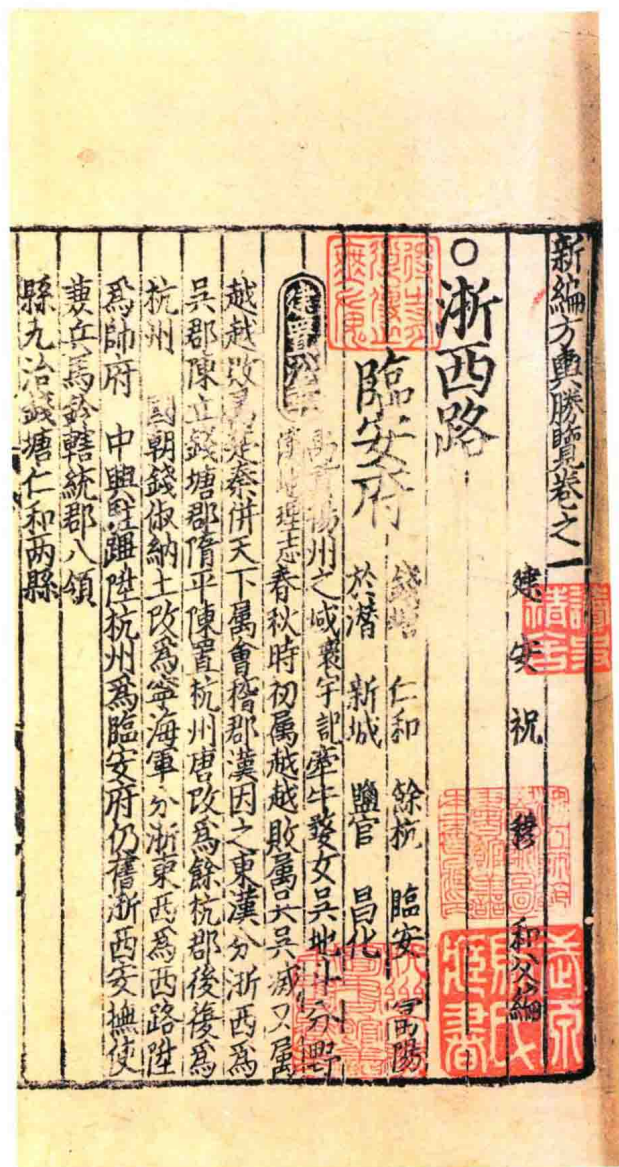 新編方輿勝覽卷之一
建安祝穆和父編
○浙西路
臨安府
錢塘 仁和 餘杭 臨安 富陽
於潛 新城 鹽官 昌化
建置沿革
禹貢揚州之域寰宇記牽牛婺女吳地斗分野
漢地理志春秋時初屬越越敗屬吳吳滅又屬
越越敗屬楚秦併天下屬會稽郡漢因之東漢分浙西爲
吳郡陳立錢塘郡隋平陳置杭州唐改爲餘杭郡後復爲
杭州 國朝錢俶納土改爲寧海軍分浙東西爲西路陞
爲帥府 中興駐蹕陞杭州爲臨安府仍舊浙西安撫使
兼兵馬鈐轄統郡八領
縣九治錢塘仁和两縣